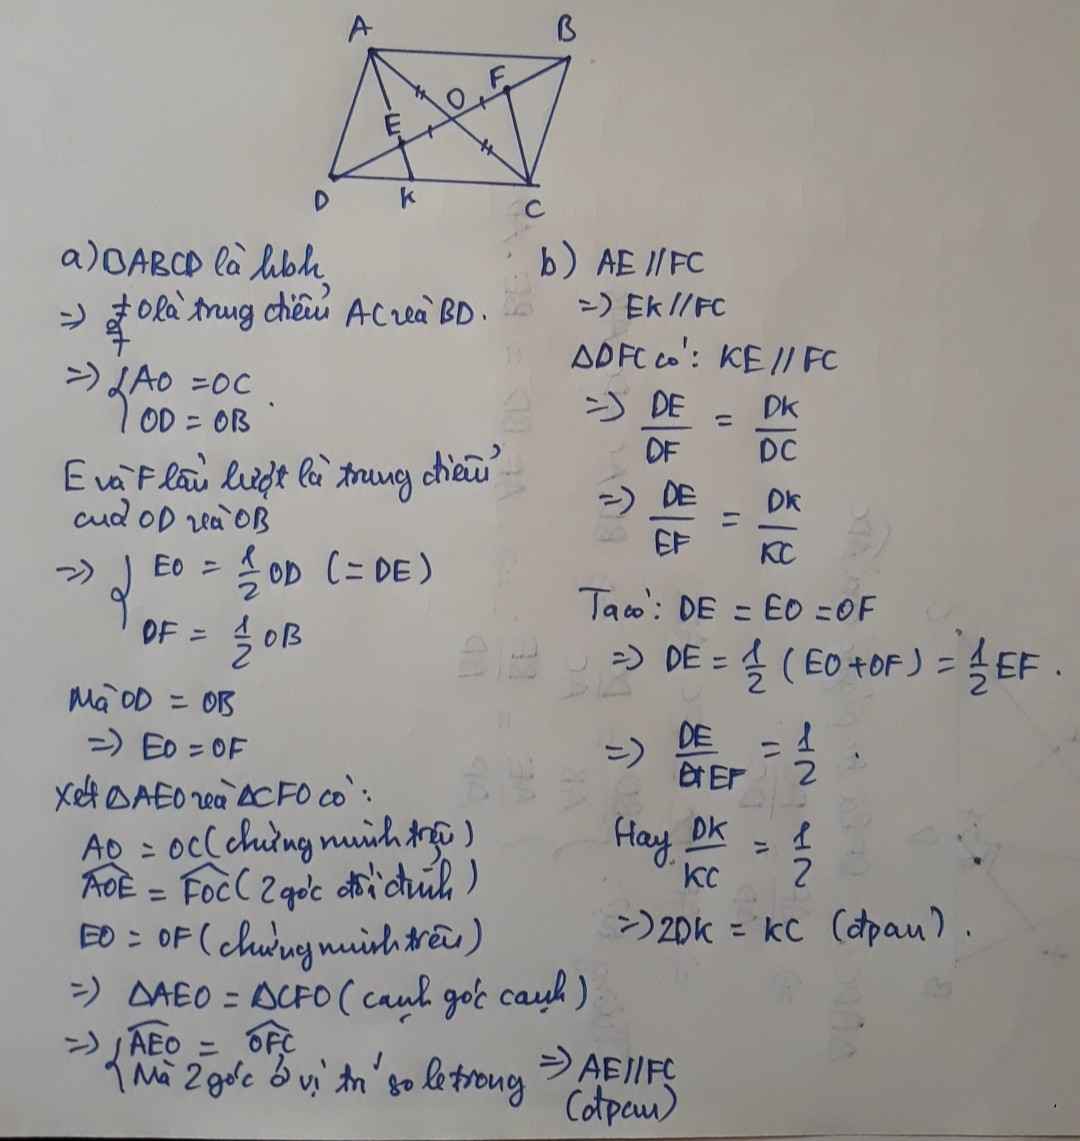 A B
F
O
E
D K C
a) ▱ABCD là hbh
=> O là trung điểm AC và BD.
=> { AO = OC
OD = OB.
E và F lần lượt là trung điểm
của OD và OB
=> { EO = 1/2 OD (= DE)
OF = 1/2 OB
Mà OD = OB
=> EO = OF
Xét ΔAEO và ΔCFO có:
AO = OC (chứng minh trên)
\widehat{AOE} = \widehat{FOC} (2 góc đối đỉnh)
EO = OF (chứng minh trên)
=> ΔAEO = ΔCFO (cạnh góc cạnh)
=> { \widehat{AEO} = \widehat{OFC}
Mà 2 góc ở vị trí so le trong => AE // FC
(đpcm)
b) AE // FC
=> EK // FC
ΔDFC có: KE // FC
=> DE/DF = DK/DC
=> DE/EF = DK/KC
Ta có: DE = EO = OF
=> DE = 1/2 (EO + OF) = 1/2 EF.
=> DE/EF = 1/2.
Hay DK/KC = 1/2
=> 2DK = KC (đpcm).